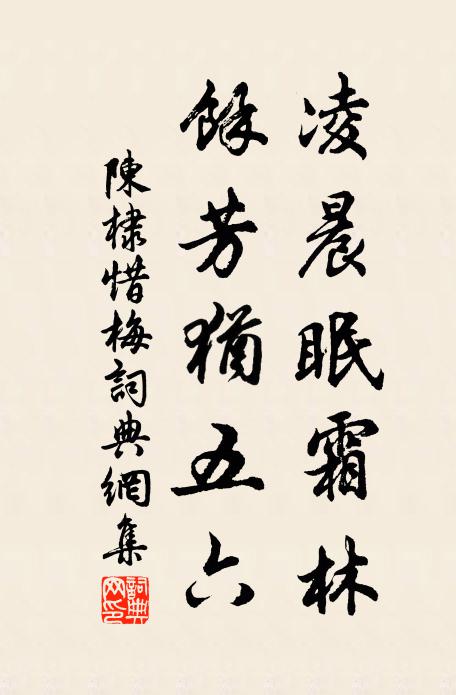 凌晨眠霜林
餘芳猶五六
陳棣惜梅詞典網集
詞典网印